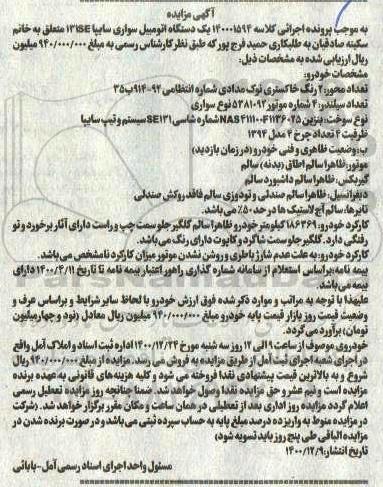 آگهی مزایده
به موجب پرونده اجرائی کلاسه ۱۴۰۰۰۱۵۹۴ یک دستگاه اتومبیل سواری سایپا ۱۳۱SE متعلق به خانم
سکینه صادقیان به طلبکاری حمید فرج پور که طبق نظر کارشناس رسمی به مبلغ ۹۴۰/۰۰۰/۰۰۰
ریال ارزیابی شده به مشخصات ذیل:
مشخصات خودرو:
تعداد محور: ۲ رنگ خاکستری نوک مدادی شماره انتظامی ۹۲-۹۱۴ب۳۵
تعداد سیلندر: ۴ شماره موتور ۵۳۸۱۰۹۲ نوع سواری
نوع سوخت: بنزین NAS۴۱۱۱۰۰F۱۱۳۶۰۲۵ شماره شاسی SE۱۳۱ سیستم و تیپ سایپا
ظرفیت ۴ تعداد چرخ ۴ مدل ۱۳۹۴
ب: وضعیت ظاهری و فنی خودرو (در زمان بازدید)
موتور: ظاهرا سالم اطاق (بدنه) سالم
گیربکس: ظاهرا سالم داشبورد سالم
دیفرانسیل: ظاهرا سالم صندلی و تودوزی سالم فاقد روکش صندلی
تایرها: سالم آج لاستیک ها در حد ۵۰٪ می باشد.
کارکرد خودرو: ۱۸۶۳۶۹ کیلومتر خودرو ظاهرا سالم گلگیر جلو سمت چپ و راست دارای آثار برخورد و تو
رفتگی دارد. گلگیر جلو سمت شاگرد و کاپوت دارای رنگ می باشد.
کارکرد خودرو: به علت عدم شارژ باطری و روشن نشدن موتور میزان کارکرد نامشخص می باشد.
بیمه نامه: براساس استعلام از سامانه شماره گذاری راهور اعتبار بیمه نامه تا تاریخ ۱۴۰۰/۴/۱۱ دارای
بیمه می باشد.
علیهذا با توجه به مراتب و موارد ذکر شده فوق ارزش خودرو با لحاظ سایر شرایط و براساس عرف و
وضعیت قیمت روز بازار قیمت پایه خودرو مبلغ ۹۴۰/۰۰۰/۰۰۰ میلیون ریال معادل (نود و چهارمیلیون
تومان) برآورد می گردد.
خودروی موصوف از ساعت ۹ الی ۱۲ روز سه شنبه مورخ ۱۴۰۰/۱۲/۲۴ اداره ثبت اسناد و املاک آمل واقع
در اجرای شعبه اجرای ثبت آمل از طریق مزایده به فروش می رسد. مزایده از مبلغ ۹۴۰/۰۰۰/۰۰۰ ریال
شروع و به بالاترین قیمت پیشنهادی نقدا فروخته می شود و کلیه هزینه های قانونی به عهده برنده
مزایده است و نیم عشر و حق مزایده نقدا وصول خواهد شد. ضمنا چنانچه روز مزایده تعطیل رسمی
اعلام گردد مزایده روز اداری بعد از تعطیلی در همان ساعت و مکان مقرر برگزار خواهد شد. (شرکت
در مزایده منوط به واریز ده درصد مبلغ پایه به حساب سپرده ثبتی می باشد و در صورت برنده شدن در
مزایده الباقی طی پنج روز باید تسویه شود)
تاریخ انتشار: ۱۴۰۰/۱۲/۹
مسئول واحد اجرای اسناد رسمی آمل-بابائی